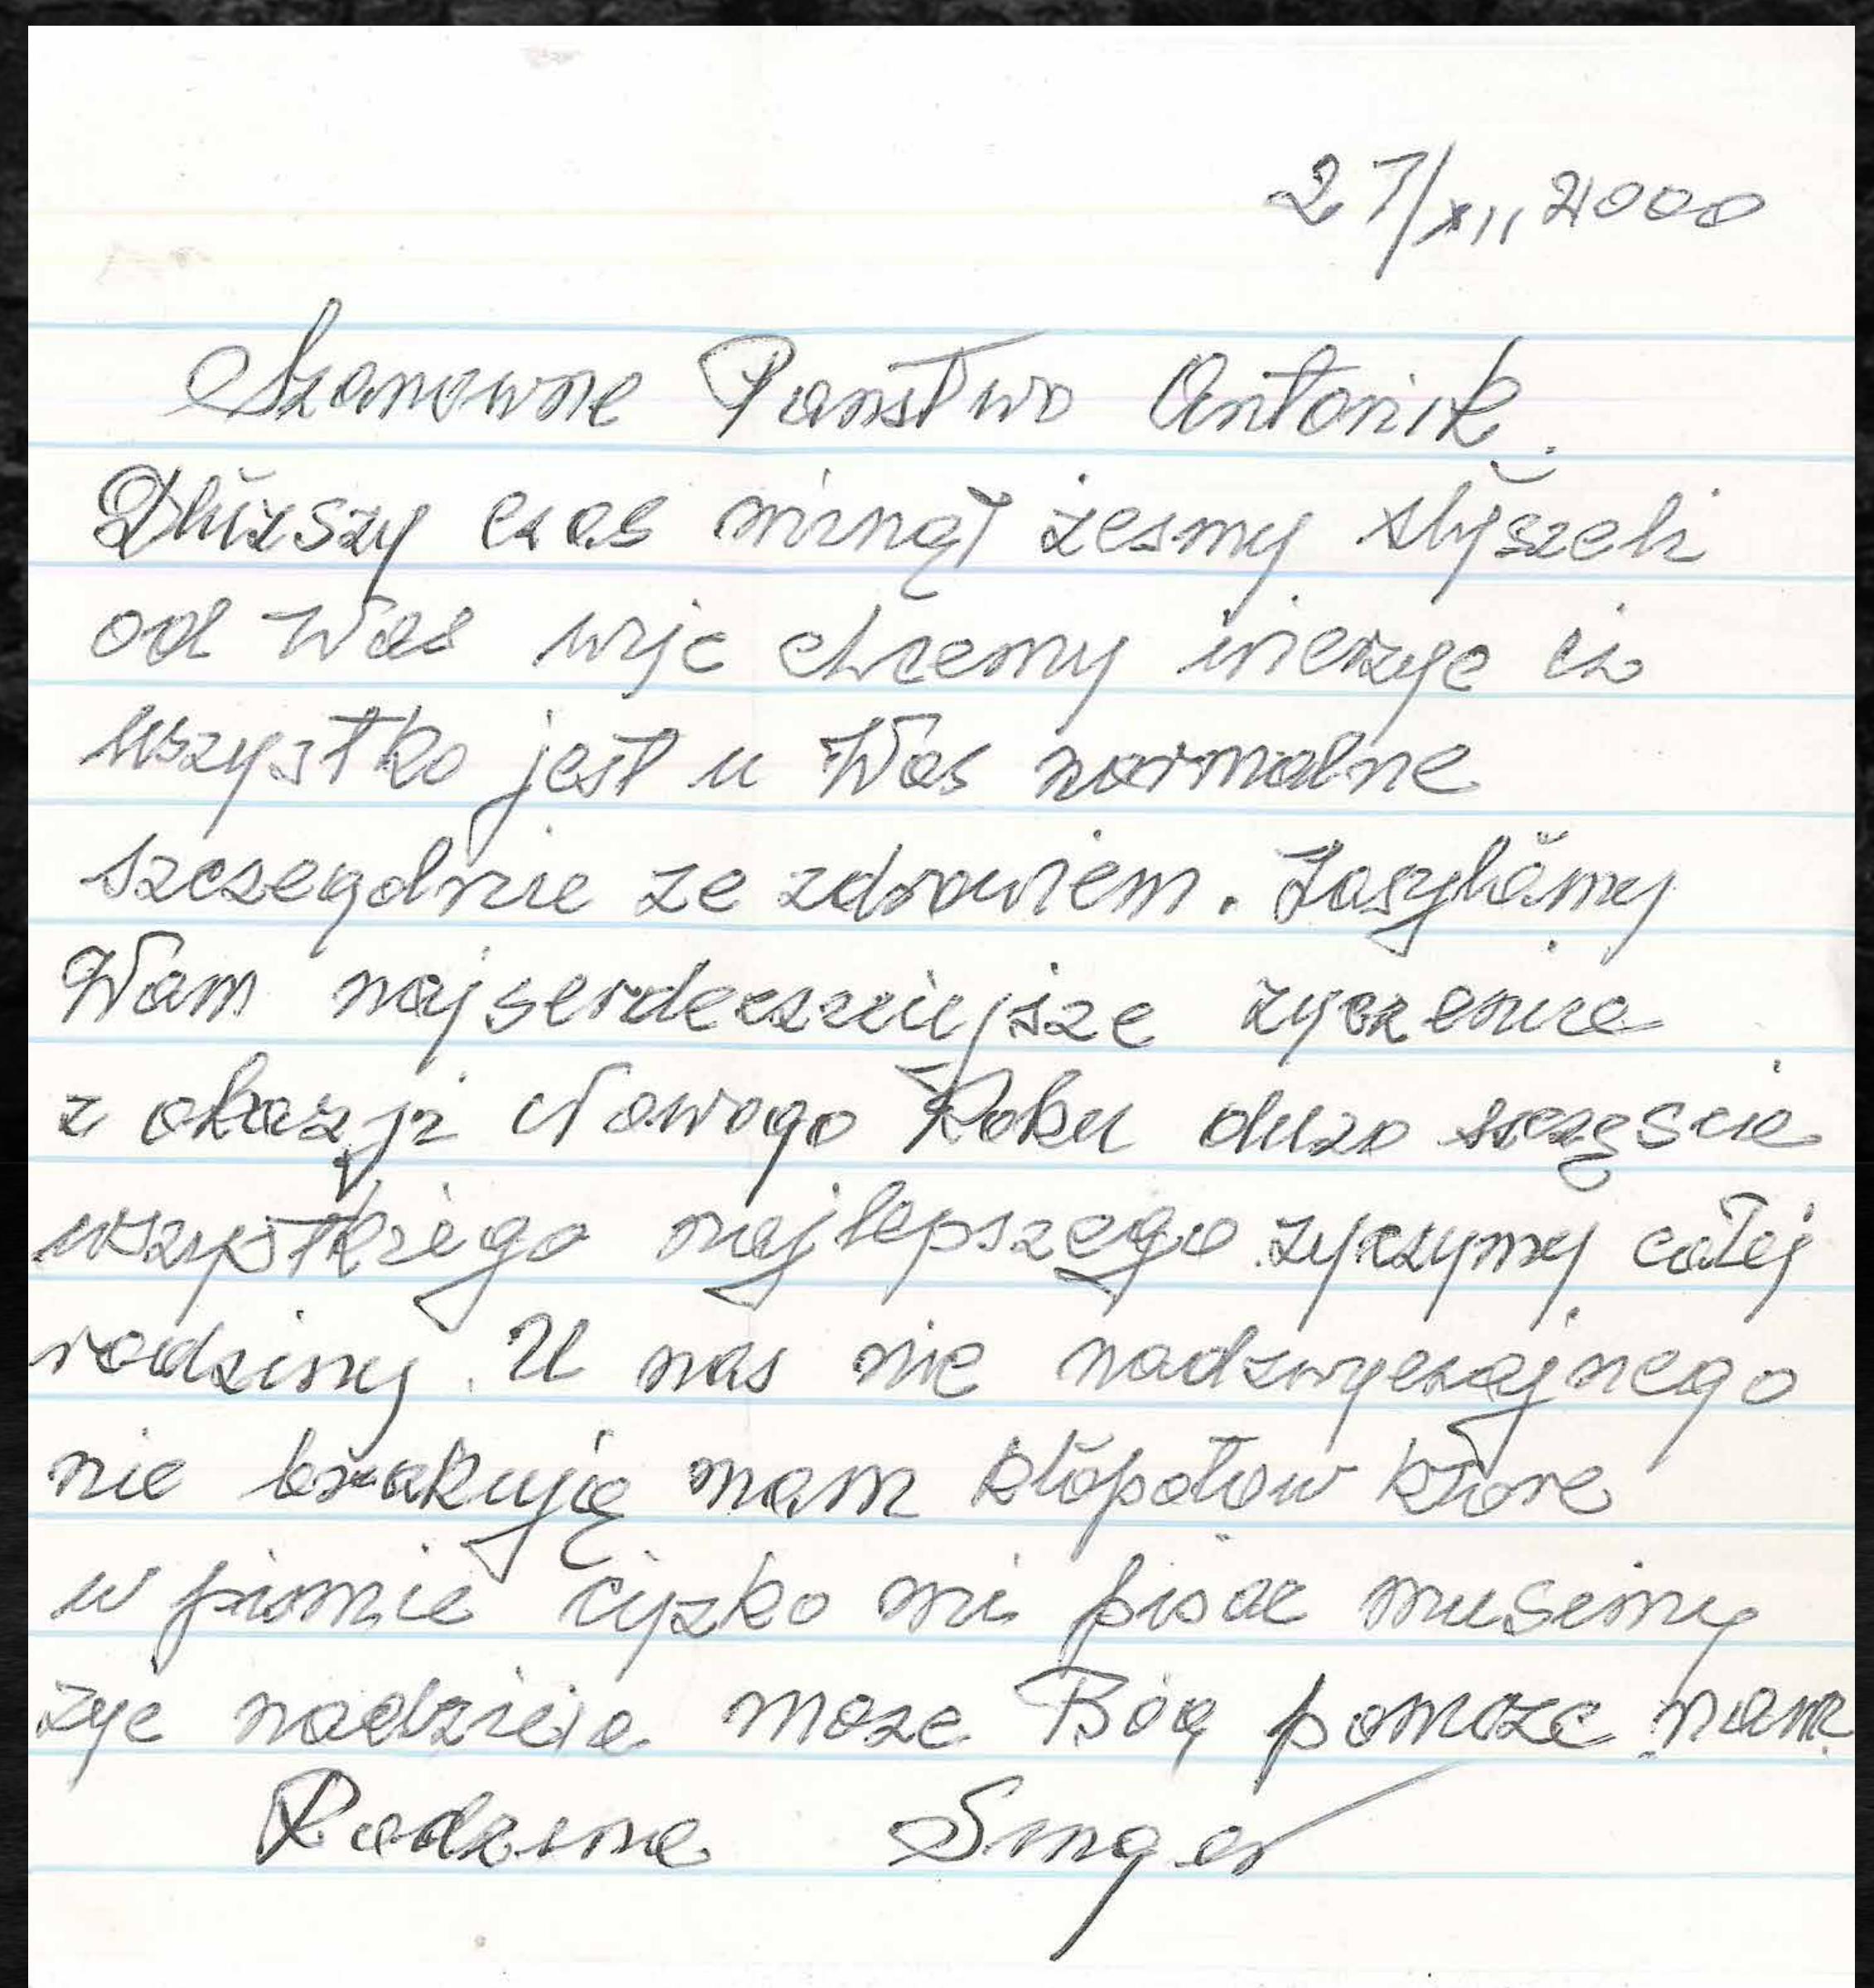 27/XII 2000
Szanowne Państwo Antonik.
Dłuższy czas minął żesmy słyszeli
od Was więc chcemy wierzyc iż
wszystko jest u Was normalne
szczegolnie ze zdrowiem. Zasyłamy
Wam najserdeczniejsze zyczenia
z okazji Nowego Roku duzo szczęscia
wszystkiego najlepszego zyczymy całej
rodziny. U nas nic nadzwyczajnego
nie brakują nam kłopotow ktore
w pismie cięzko mi pisac musimy
zyc nadzieja moze Bóg pomoze nam.
Rodzina Singer